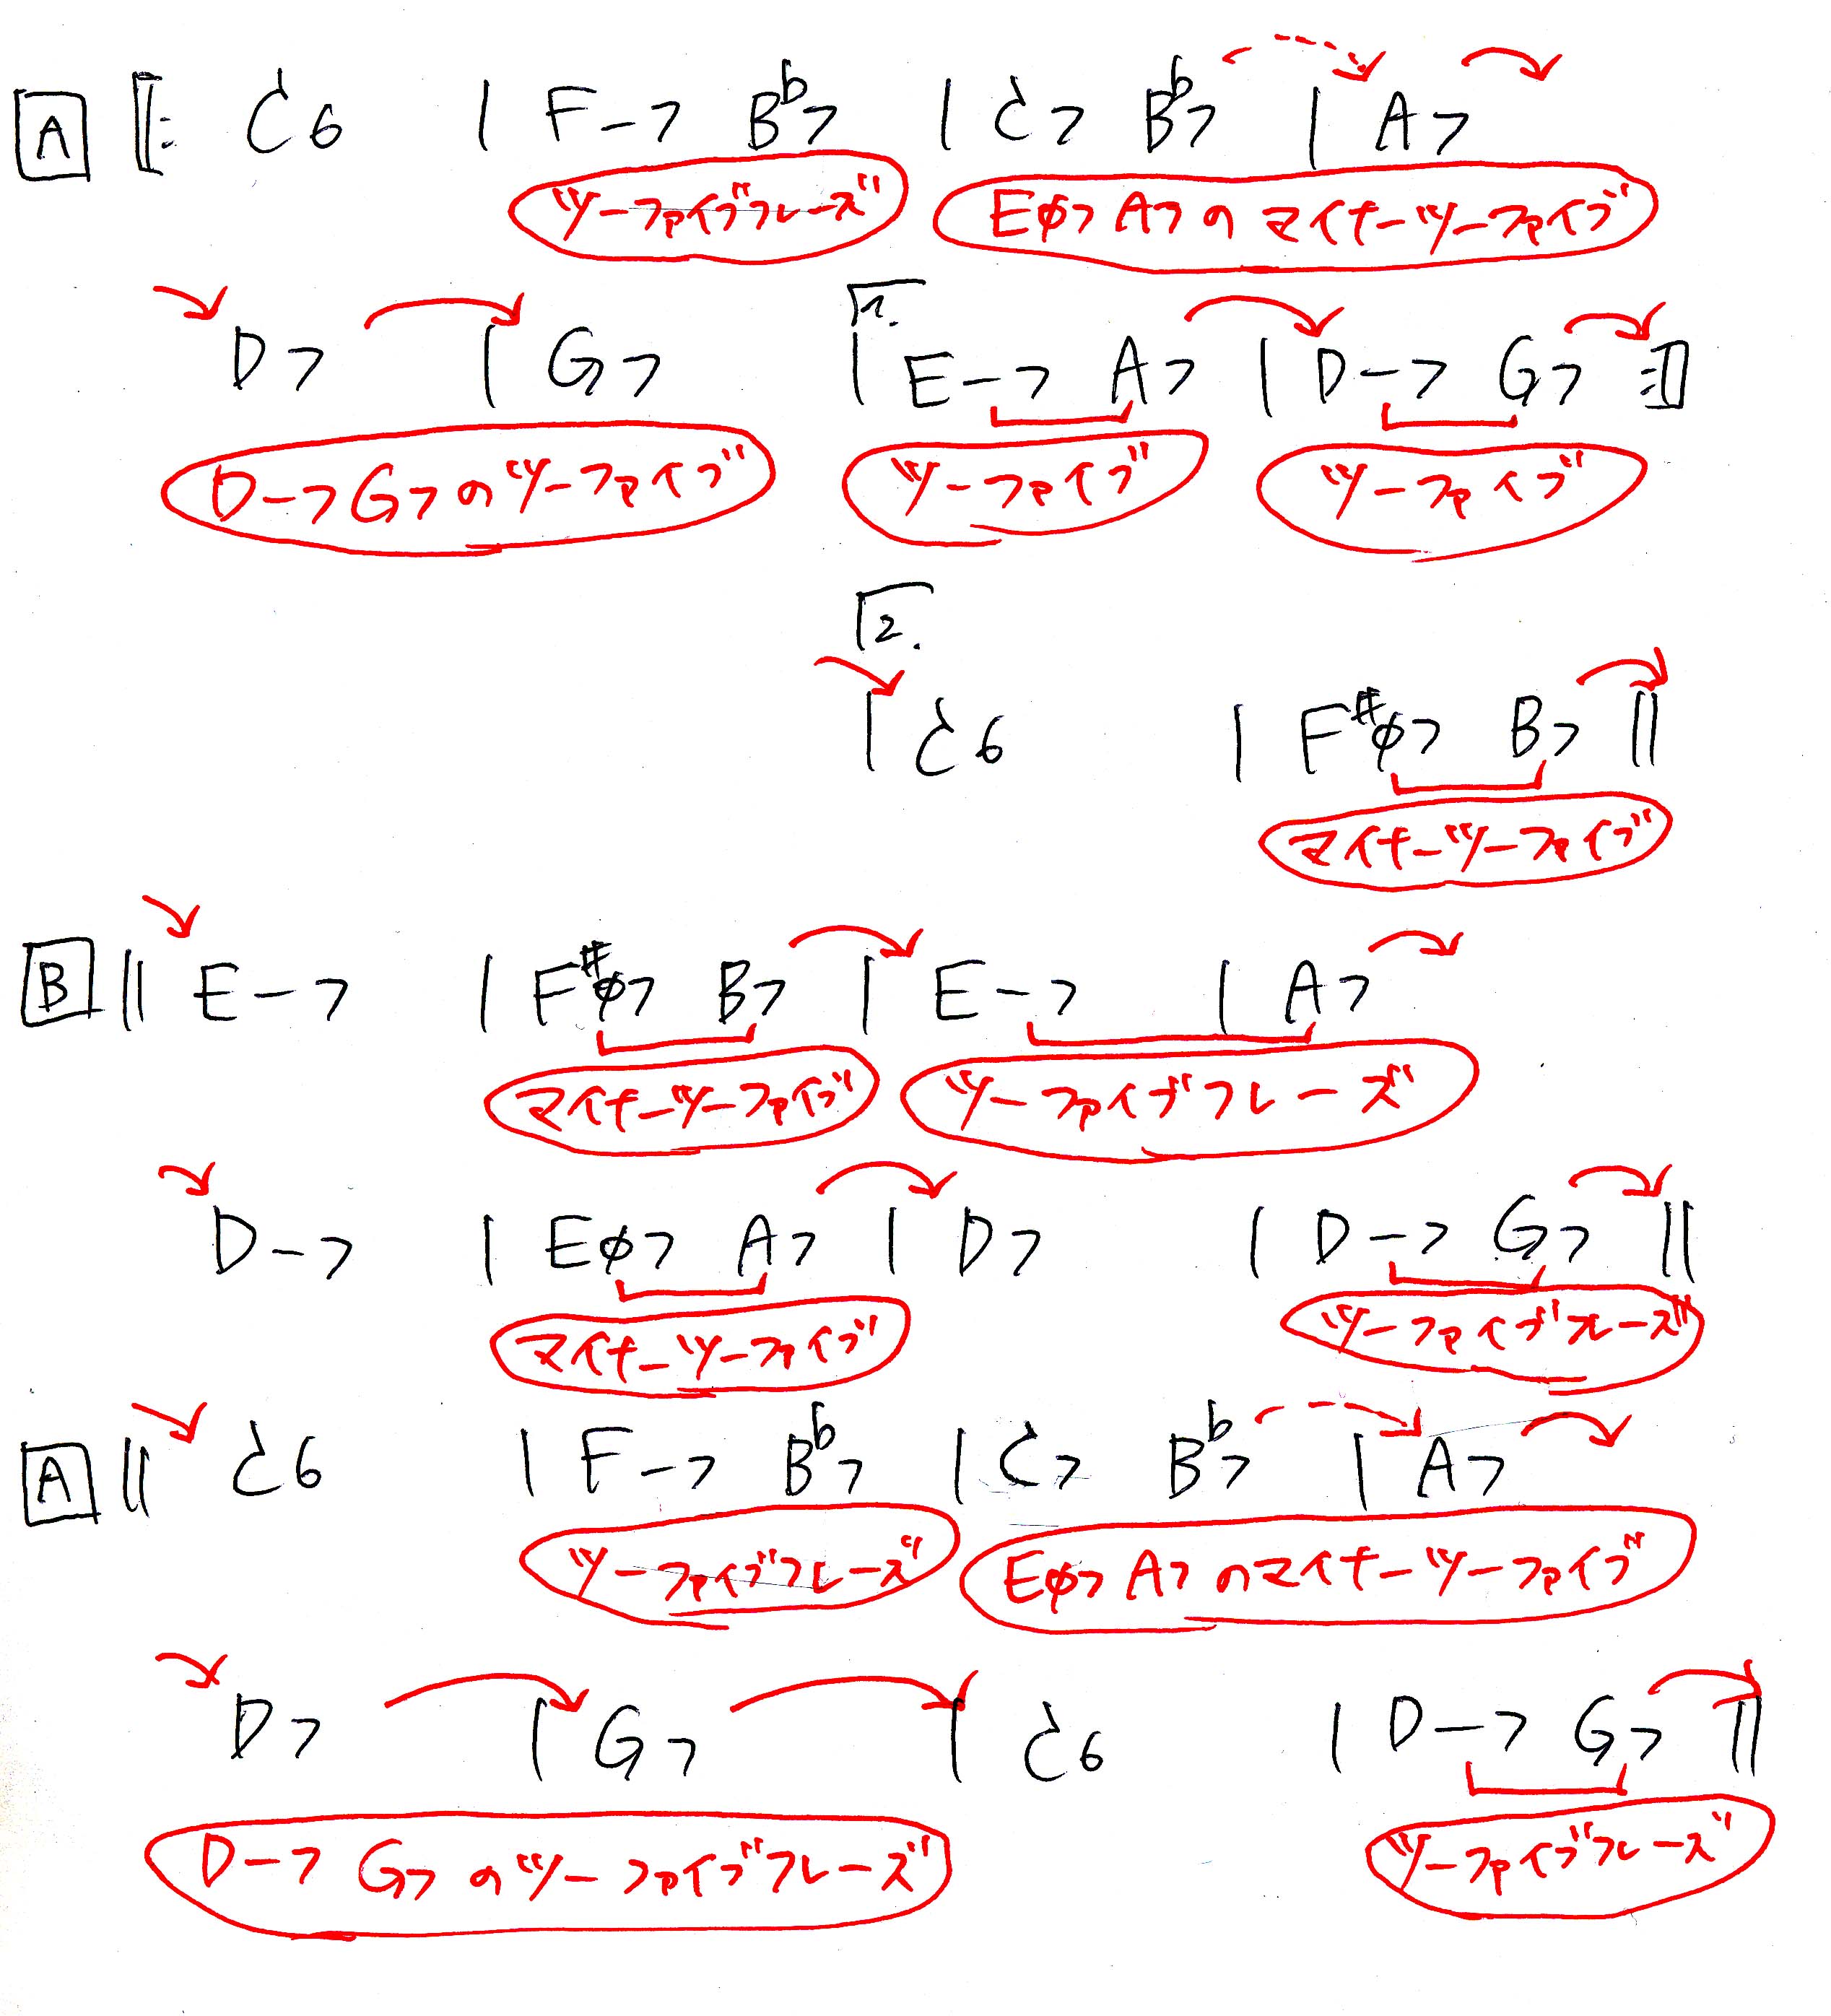 A 𝄆 C6 | F-7 B♭7 | C7 B♭7 | A7
ツーファイブフレーズ Eφ7 A7 の マイナーツーファイブ
D7 | G7 |1. E-7 A7 | D-7 G7 𝄇
D-7 G7 のツーファイブ ツーファイブ ツーファイブ
2.
| C6 | F#φ7 B7 ||
マイナーツーファイブ
B || E-7 | F#φ7 B7 | E-7 | A7
マイナーツーファイブ ツーファイブフレーズ
D-7 | Eφ7 A7 | D7 | D-7 G7 ||
マイナーツーファイブ ツーファイブフレーズ
A || C6 | F-7 B♭7 | C7 B♭7 | A7
ツーファイブフレーズ Eφ7 A7 のマイナーツーファイブ
D7 | G7 | C6 | D-7 G7 ||
D-7 G7 のツーファイブフレーズ ツーファイブフレーズ